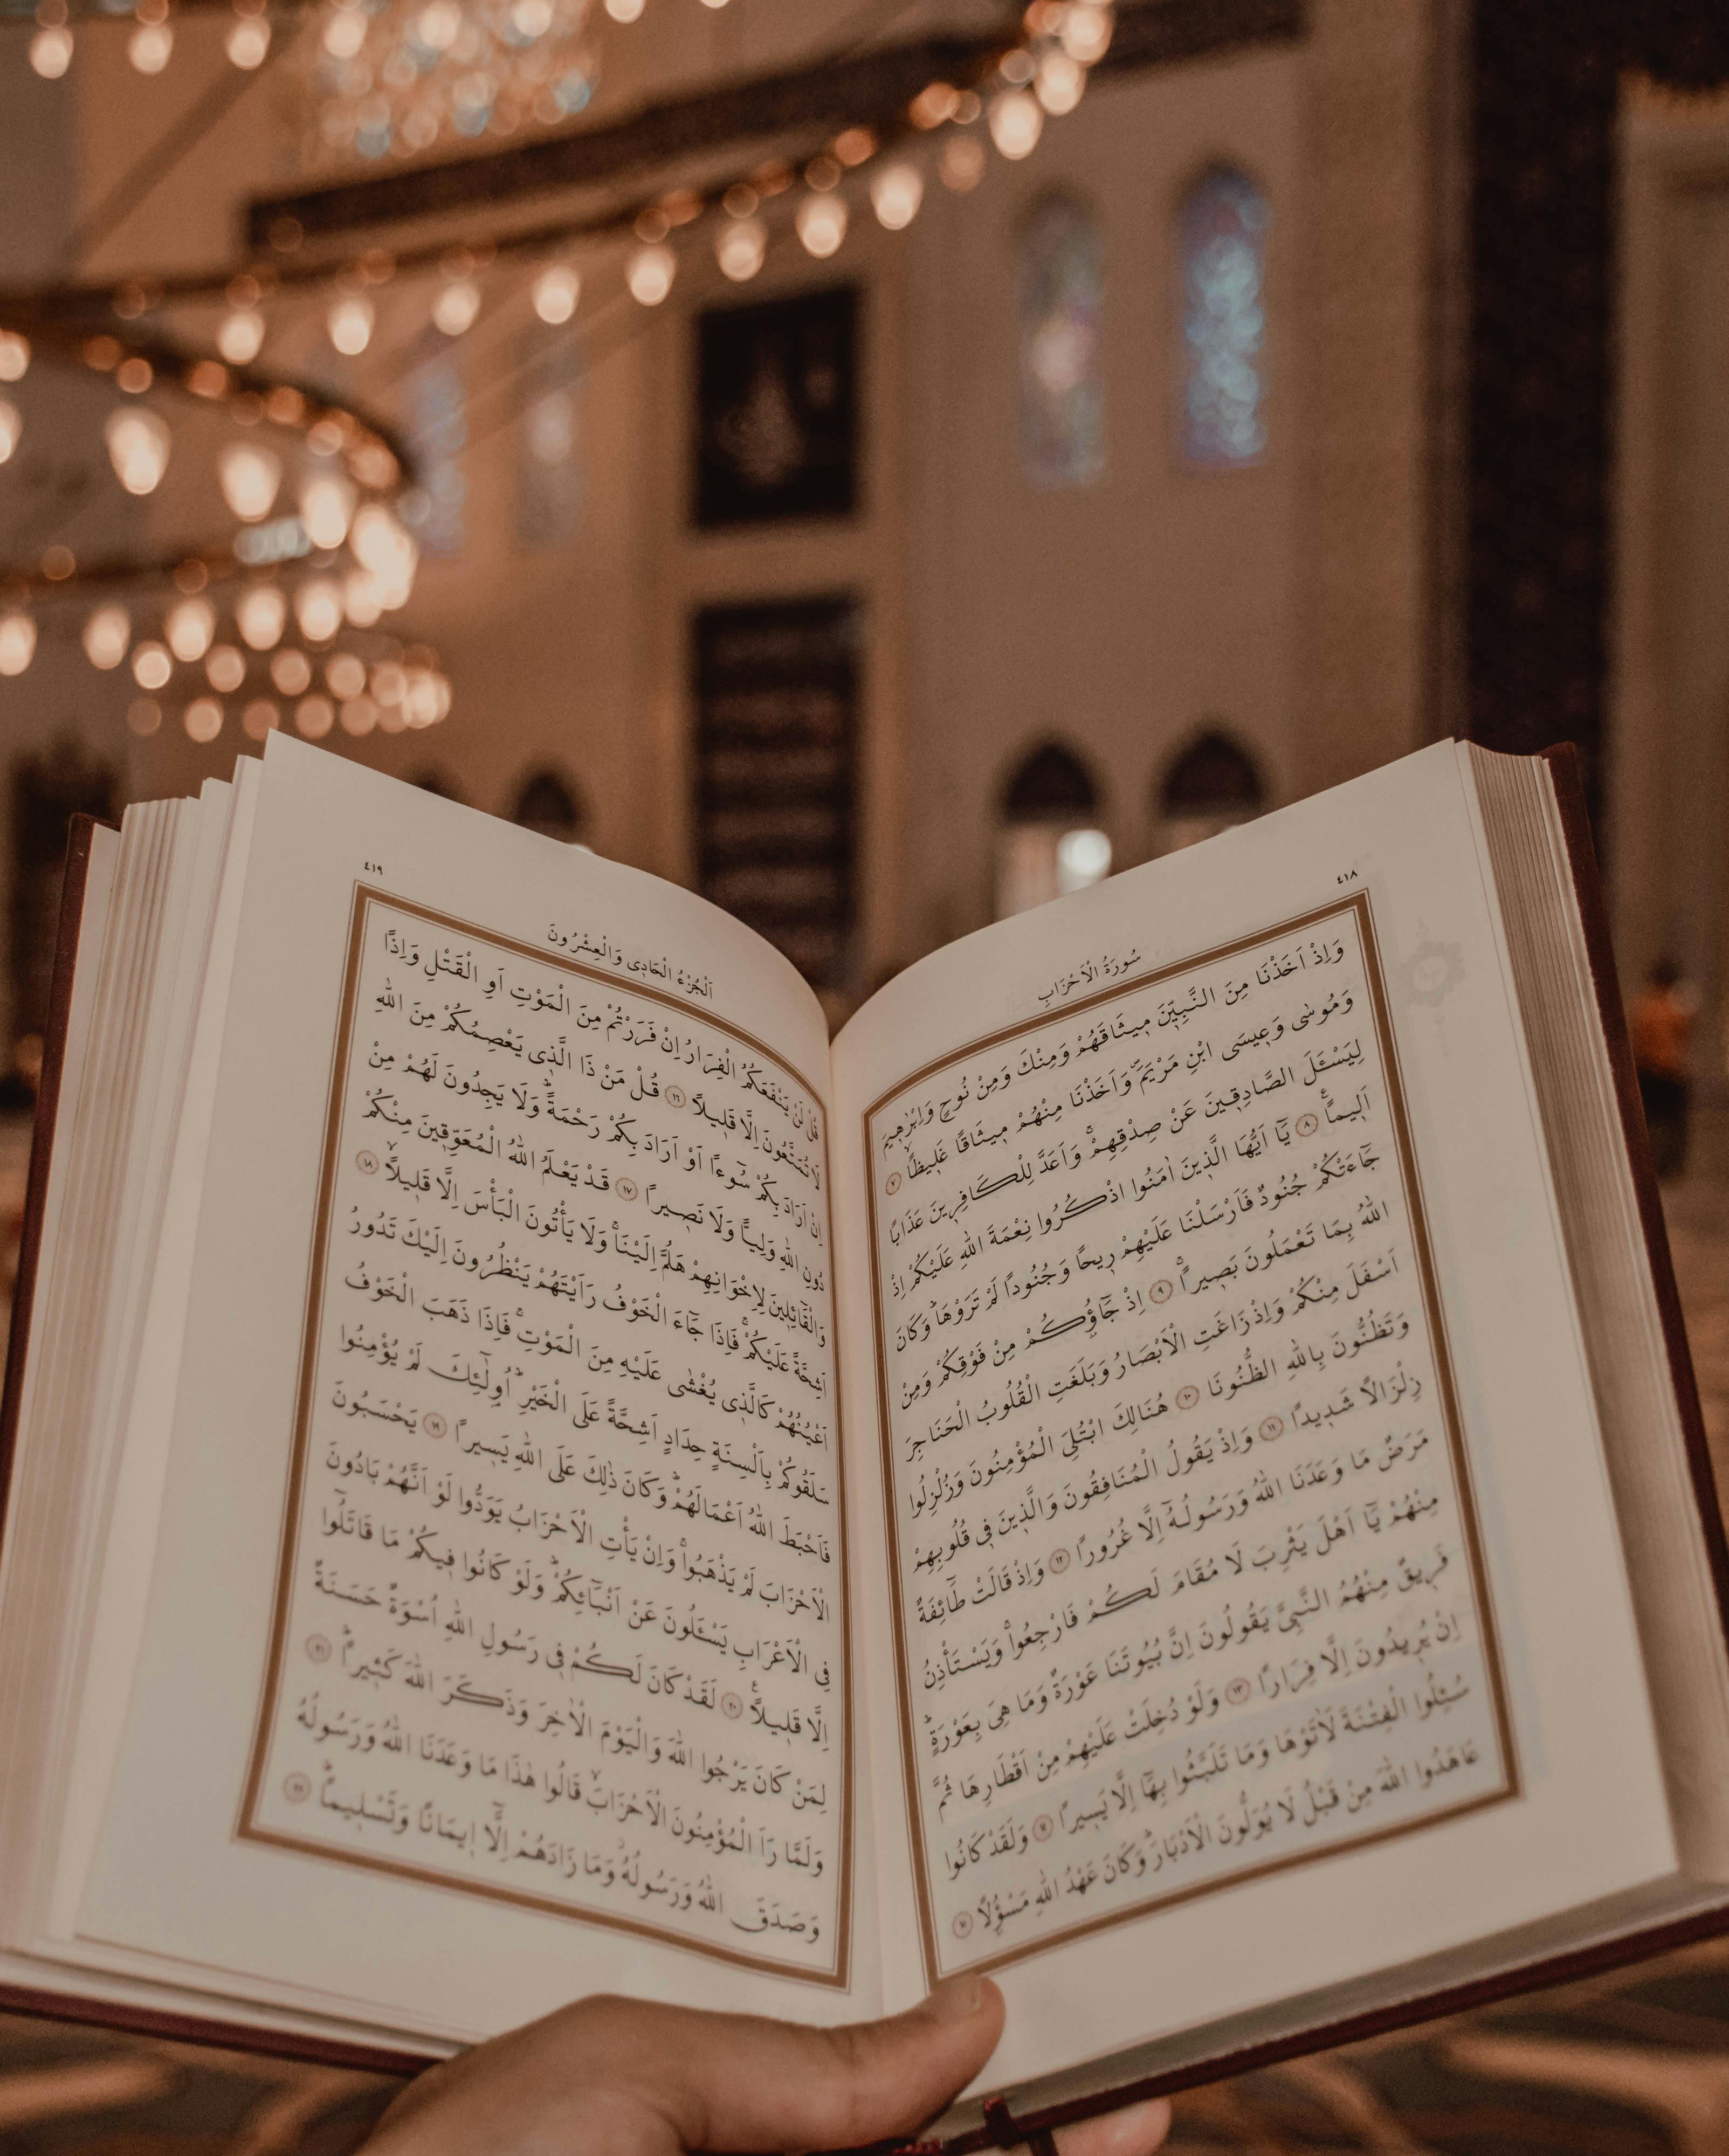 ٤١٨
سُورَةُ الْاَحْزَابِ
وَاِذْ اَخَذْنَا مِنَ النَّبِيّٖنَ مٖيثَاقَهُمْ وَمِنْكَ وَمِنْ نُوحٍ وَاِبْرٰهٖيمَ
وَمُوسٰى وَعٖيسَى ابْنِ مَرْيَمَۖ وَاَخَذْنَا مِنْهُمْ مٖيثَاقًا غَلٖيظًاۙ ﴿٧﴾
لِيَسْـَٔلَ الصَّادِقٖينَ عَنْ صِدْقِهِمْۚ وَاَعَدَّ لِلْكَافِرٖينَ عَذَابًا
اَلٖيمًاࣖ ﴿٨﴾ يَٓا اَيُّهَا الَّذٖينَ اٰمَنُوا اذْكُرُوا نِعْمَةَ اللّٰهِ عَلَيْكُمْ اِذْ
جَٓاءَتْكُمْ جُنُودٌ فَاَرْسَلْنَا عَلَيْهِمْ رٖيحًا وَجُنُودًا لَمْ تَرَوْهَاؕ وَكَانَ
اللّٰهُ بِمَا تَعْمَلُونَ بَصٖيرًاۚ ﴿٩﴾ اِذْ جَٓاؤُ۫كُمْ مِنْ فَوْقِكُمْ وَمِنْ
اَسْفَلَ مِنْكُمْ وَاِذْ زَاغَتِ الْاَبْصَارُ وَبَلَغَتِ الْقُلُوبُ الْحَنَاجِرَ
وَتَظُنُّونَ بِاللّٰهِ الظُّنُونَا ﴿١٠﴾ هُنَالِكَ ابْتُلِيَ الْمُؤْمِنُونَ وَزُلْزِلُوا
زِلْزَالًا شَدٖيدًا ﴿١١﴾ وَاِذْ يَقُولُ الْمُنَافِقُونَ وَالَّذٖينَ فٖي قُلُوبِهِمْ
مَرَضٌ مَا وَعَدَنَا اللّٰهُ وَرَسُولُهُٓ اِلَّا غُرُورًا ﴿١٢﴾ وَاِذْ قَالَتْ طَٓائِفَةٌ
مِنْهُمْ يَٓا اَهْلَ يَثْرِبَ لَا مُقَامَ لَكُمْ فَارْجِعُواۚ وَيَسْتَأْذِنُ
فَرٖيقٌ مِنْهُمُ النَّبِيَّ يَقُولُونَ اِنَّ بُيُوتَنَا عَوْرَةٌ وَمَا هِيَ بِعَوْرَةٍۚ
اِنْ يُرٖيدُونَ اِلَّا فِرَارًا ﴿١٣﴾ وَلَوْ دُخِلَتْ عَلَيْهِمْ مِنْ اَقْطَارِهَا ثُمَّ
سُئِلُوا الْفِتْنَةَ لَاٰتَوْهَا وَمَا تَلَبَّثُوا بِهَٓا اِلَّا يَسٖيرًا ﴿١٤﴾ وَلَقَدْ كَانُوا
عَاهَدُوا اللّٰهَ مِنْ قَبْلُ لَا يُوَلُّونَ الْاَدْبَارَؕ وَكَانَ عَهْدُ اللّٰهِ مَسْؤُ۫لًا ﴿١٥﴾
٤١٩
اَلْجُزْءُ الْحَادٖي وَالْعِشْرُونَ
قُلْ لَنْ يَنْفَعَكُمُ الْفِرَارُ اِنْ فَرَرْتُمْ مِنَ الْمَوْتِ اَوِ الْقَتْلِ وَاِذًا
لَا تُمَتَّعُونَ اِلَّا قَلٖيلًا ﴿١٦﴾ قُلْ مَنْ ذَا الَّذٖي يَعْصِمُكُمْ مِنَ اللّٰهِ
اِنْ اَرَادَ بِكُمْ سُٓوءًا اَوْ اَرَادَ بِكُمْ رَحْمَةًؕ وَلَا يَجِدُونَ لَهُمْ مِنْ
دُونِ اللّٰهِ وَلِيًّا وَلَا نَصٖيرًا ﴿١٧﴾ قَدْ يَعْلَمُ اللّٰهُ الْمُعَوِّقٖينَ مِنْكُمْ
وَالْقَٓائِلٖينَ لِاِخْوَانِهِمْ هَلُمَّ اِلَيْنَاۚ وَلَا يَأْتُونَ الْبَأْسَ اِلَّا قَلٖيلًاۙ ﴿١٨﴾
اَشِحَّةً عَلَيْكُمْۚ فَاِذَا جَٓاءَ الْخَوْفُ رَاَيْتَهُمْ يَنْظُرُونَ اِلَيْكَ تَدُورُ
اَعْيُنُهُمْ كَالَّذٖي يُغْشٰى عَلَيْهِ مِنَ الْمَوْتِۚ فَاِذَا ذَهَبَ الْخَوْفُ
سَلَقُوكُمْ بِاَلْسِنَةٍ حِدَادٍ اَشِحَّةً عَلَى الْخَيْرِؕ اُو۬لٰٓئِكَ لَمْ يُؤْمِنُوا
فَاَحْبَطَ اللّٰهُ اَعْمَالَهُمْؕ وَكَانَ ذٰلِكَ عَلَى اللّٰهِ يَسٖيرًا ﴿١٩﴾ يَحْسَبُونَ
الْاَحْزَابَ لَمْ يَذْهَبُواۚ وَاِنْ يَأْتِ الْاَحْزَابُ يَوَدُّوا لَوْ اَنَّهُمْ بَادُونَ
فِي الْاَعْرَابِ يَسْـَٔلُونَ عَنْ اَنْبَٓائِكُمْؕ وَلَوْ كَانُوا فٖيكُمْ مَا قَاتَلُٓوا
اِلَّا قَلٖيلًاࣖ ﴿٢٠﴾ لَقَدْ كَانَ لَكُمْ فٖي رَسُولِ اللّٰهِ اُسْوَةٌ حَسَنَةٌ
لِمَنْ كَانَ يَرْجُوا اللّٰهَ وَالْيَوْمَ الْاٰخِرَ وَذَكَرَ اللّٰهَ كَثٖيرًاؕ ﴿٢١﴾
وَلَمَّا رَاَ الْمُؤْمِنُونَ الْاَحْزَابَۙ قَالُوا هٰذَا مَا وَعَدَنَا اللّٰهُ وَرَسُولُهُ
وَصَدَقَ اللّٰهُ وَرَسُولُهُؗ وَمَا زَادَهُمْ اِلَّٓا اٖيمَانًا وَتَسْلٖيمًاؕ ﴿٢٢﴾